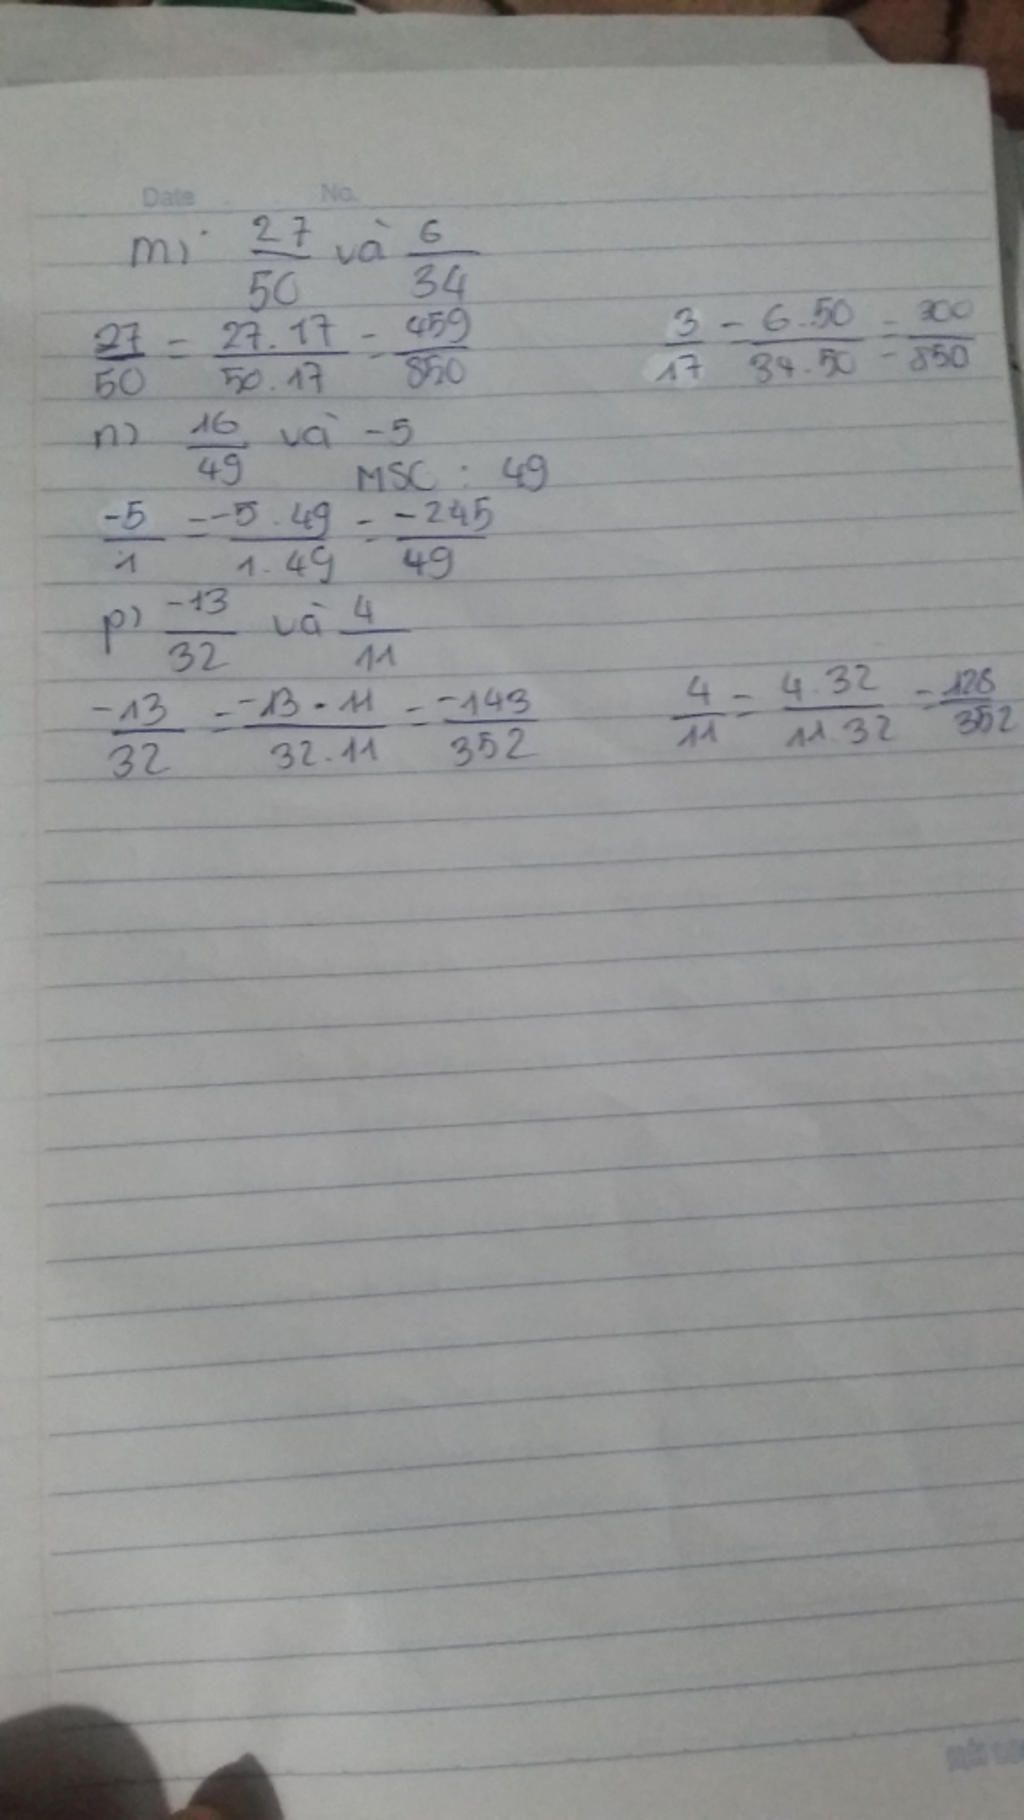 Date No.
m) 27/50 và 6/34
27/50 = 27.17/50.17 = 459/850 3/17 = 6.50/34.50 = 300/850
n) 16/49 và -5
MSC : 49
-5/1 = -5.49/1.49 = -245/49
p) -13/32 và 4/11
-13/32 = -13.11/32.11 = -143/352 4/11 = 4.32/11.32 = 128/352